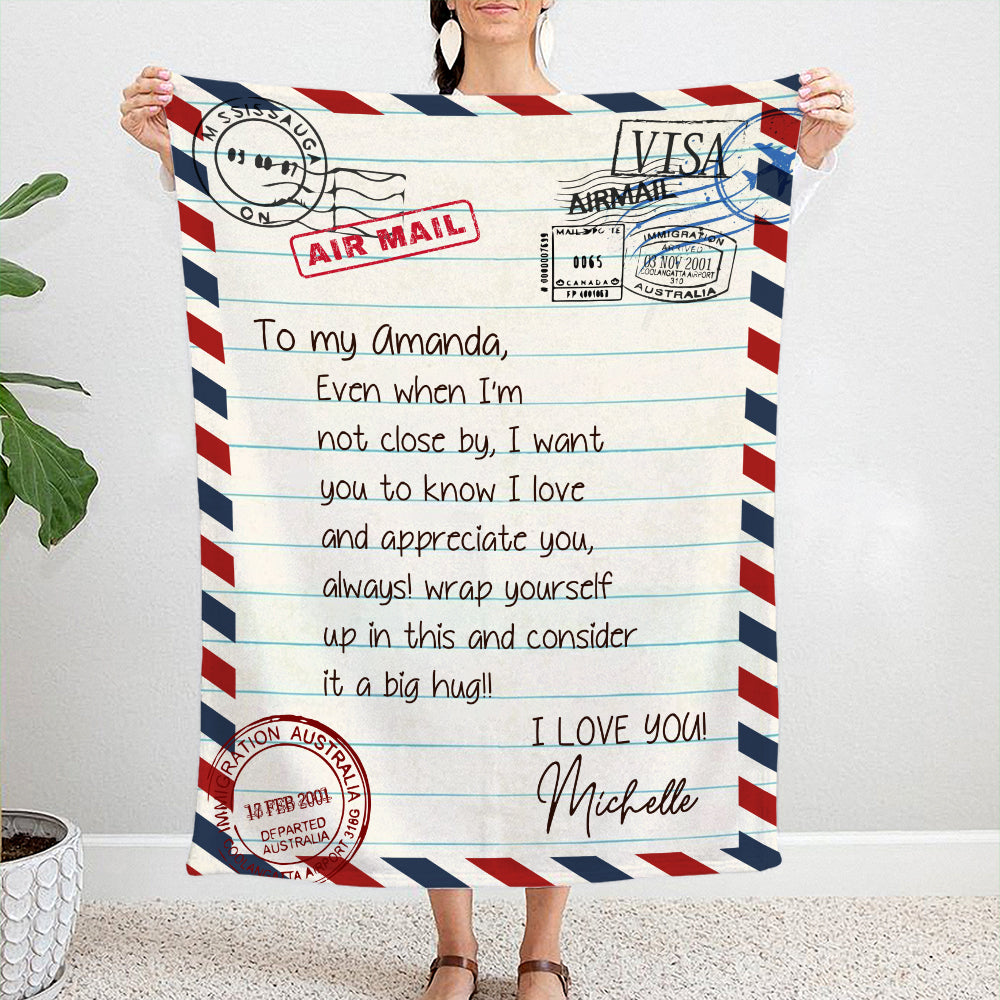 MISSISSAUGA
03
ON
AIR MAIL
VISA
AIRMAIL
0065
CANADA
FP 4001063
IMMIGRATION
ARRIVED
03 NOV 2001
COOLANGATTA AIRPORT
310
AUSTRALIA
To my Amanda,
Even when I'm
not close by, I want
you to know I love
and appreciate you,
always! wrap yourself
up in this and consider
it a big hug!!
I LOVE YOU!
Michelle
IMMIGRATION AUSTRALIA
FEB 2001
DEPARTED
AUSTRALIA
COOLANGATTA AIRPORT 318G